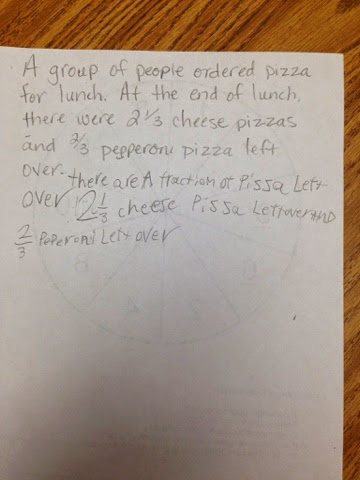 A group of people ordered pizza
for lunch. At the end of lunch,
there were 2 1/3 cheese pizzas
and 2/3 pepperoni pizza left
over. there are A fraction of Pissa Left
over 2 1/3 cheese Pissa Leftover AND
2/3 Peperoni Left over